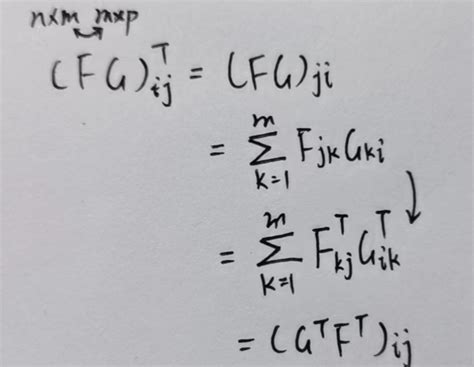 n×m m×p
(FG)ᵀij = (FG)ji
= ∑ᵐₖ₌₁ FjkGki
= ∑ᵐₖ₌₁ FᵀkjGᵀik
= (GᵀFᵀ)ij